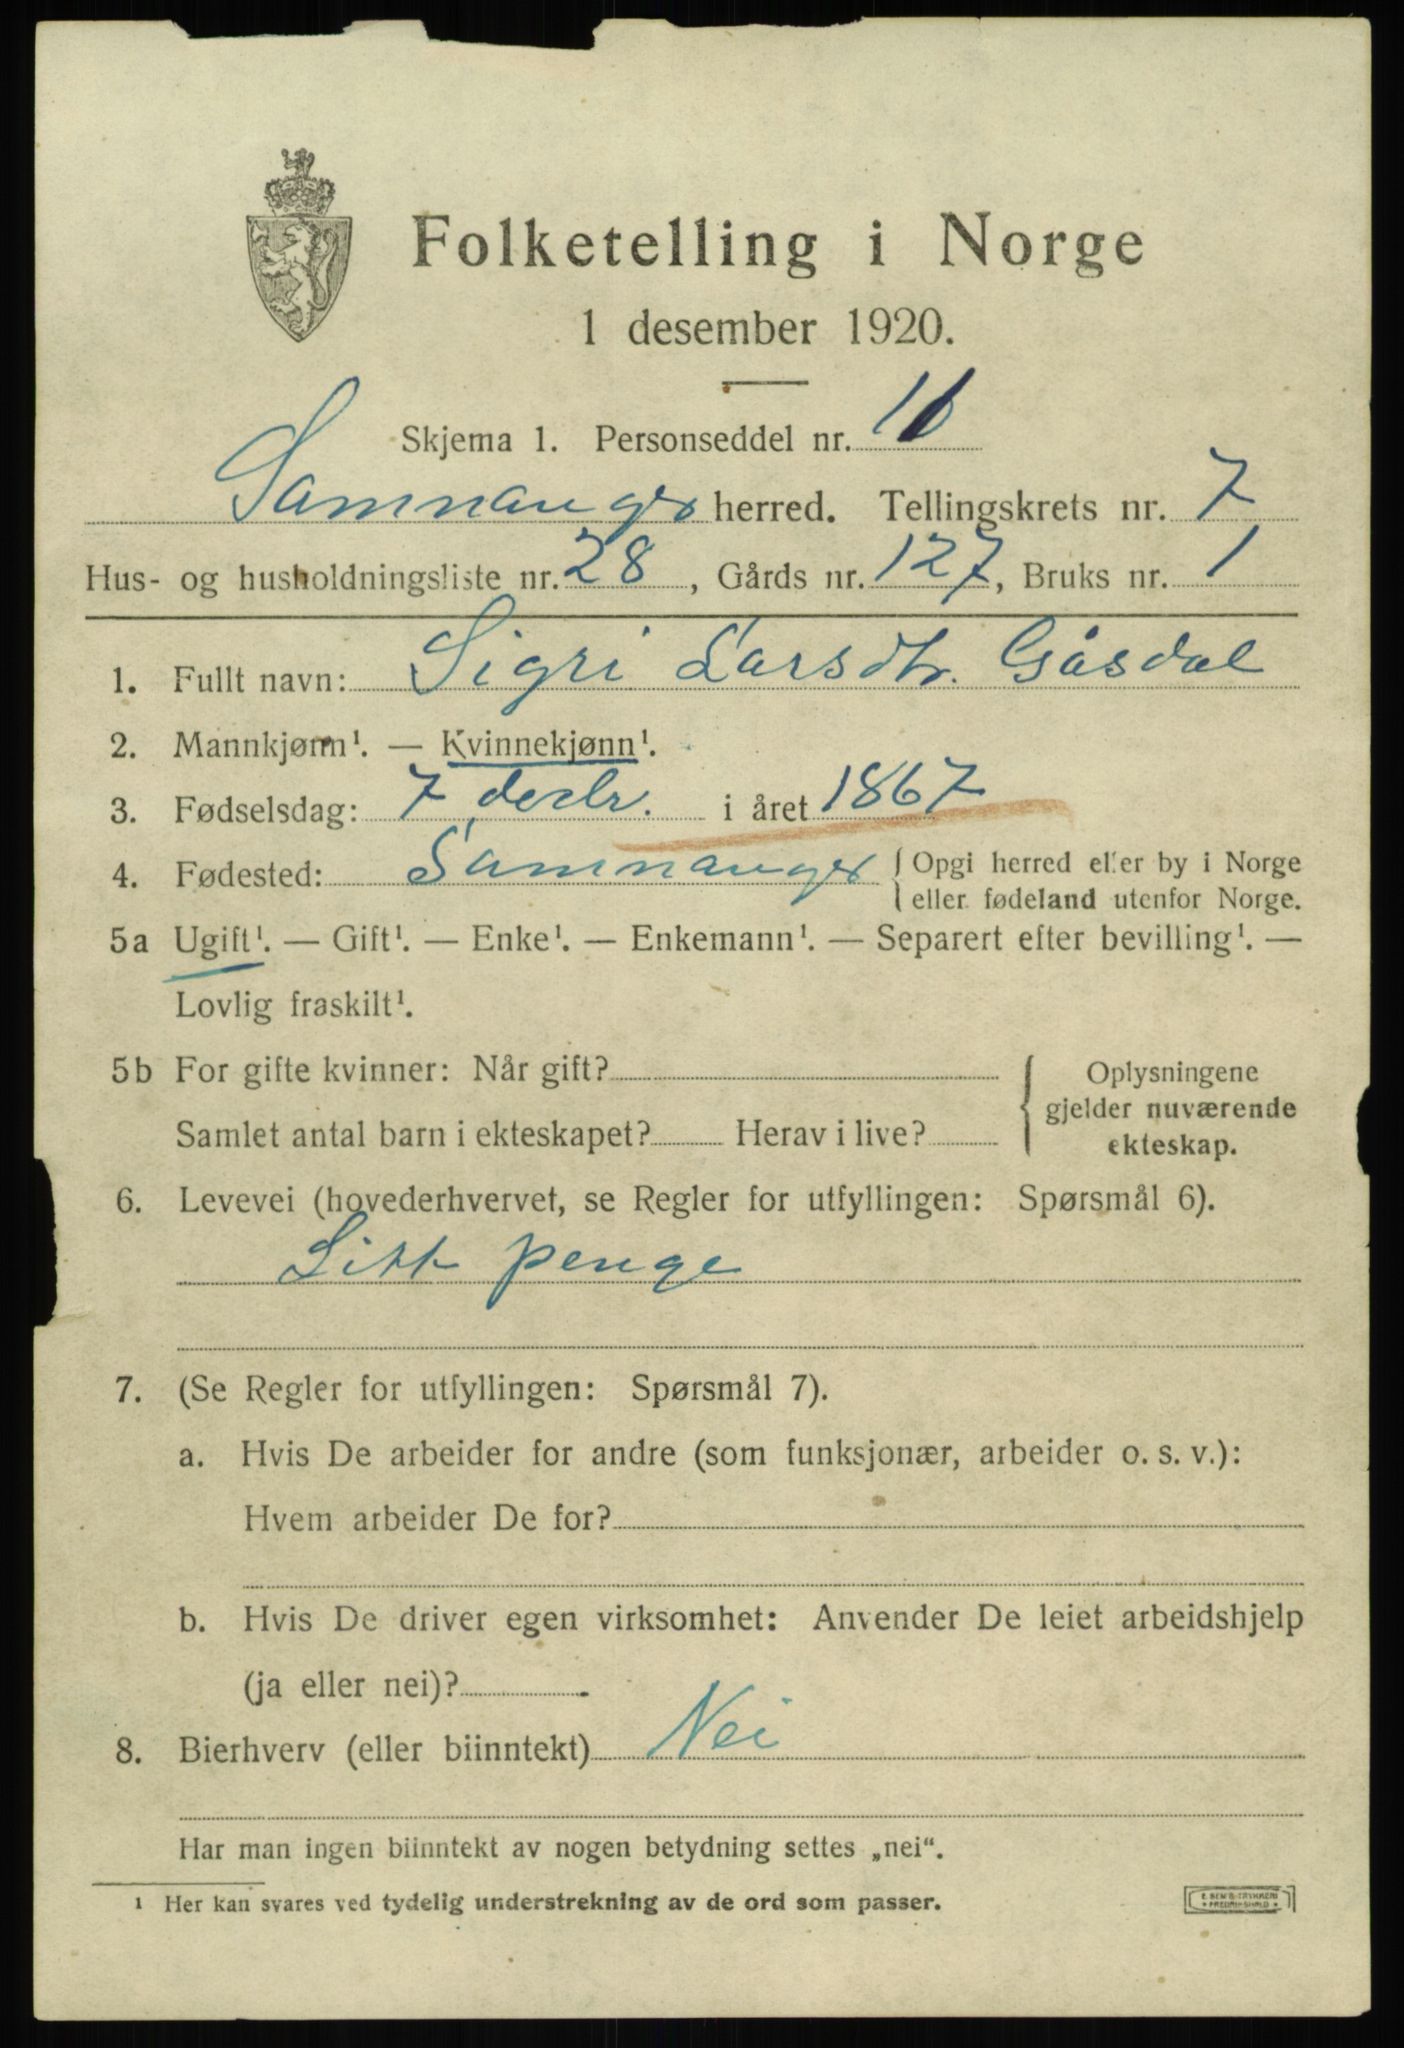 Folketelling i Norge
1 desember 1920.
Skjema 1. Personseddel nr.
Samnanger herred. Tellingskrets nr. 7
Hus- og husholdningsliste nr. 28, Gårds nr. 127, Bruks nr. 1
1. Fullt navn: Sigri Larsdtr. Gåsdal
2. Mannkjønn¹. — Kvinnekjønn¹.
3. Fødselsdag: 7 decbr. i året 1867
4. Fødested: Samnanger { Opgi herred eller by i Norge
eller fødeland utenfor Norge.
5a Ugift¹. — Gift¹. — Enke¹. — Enkemann¹. — Separert efter bevilling¹. —
Lovlig fraskilt¹.
5b For gifte kvinner: Når gift?
Samlet antal barn i ekteskapet? Herav i live?
{ Oplysningene
gjelder nuværende
ekteskap.
6. Levevei (hovederhvervet, se Regler for utfyllingen: Spørsmål 6).
Litt penge
7. (Se Regler for utfyllingen: Spørsmål 7).
a. Hvis De arbeider for andre (som funksjonær, arbeider o. s. v.):
Hvem arbeider De for?
b. Hvis De driver egen virksomhet: Anvender De leiet arbeidshjelp
(ja eller nei)?
8. Bierhverv (eller biinntekt) Nei
Har man ingen biinntekt av nogen betydning settes „nei“.
¹ Her kan svares ved tydelig understrekning av de ord som passer.